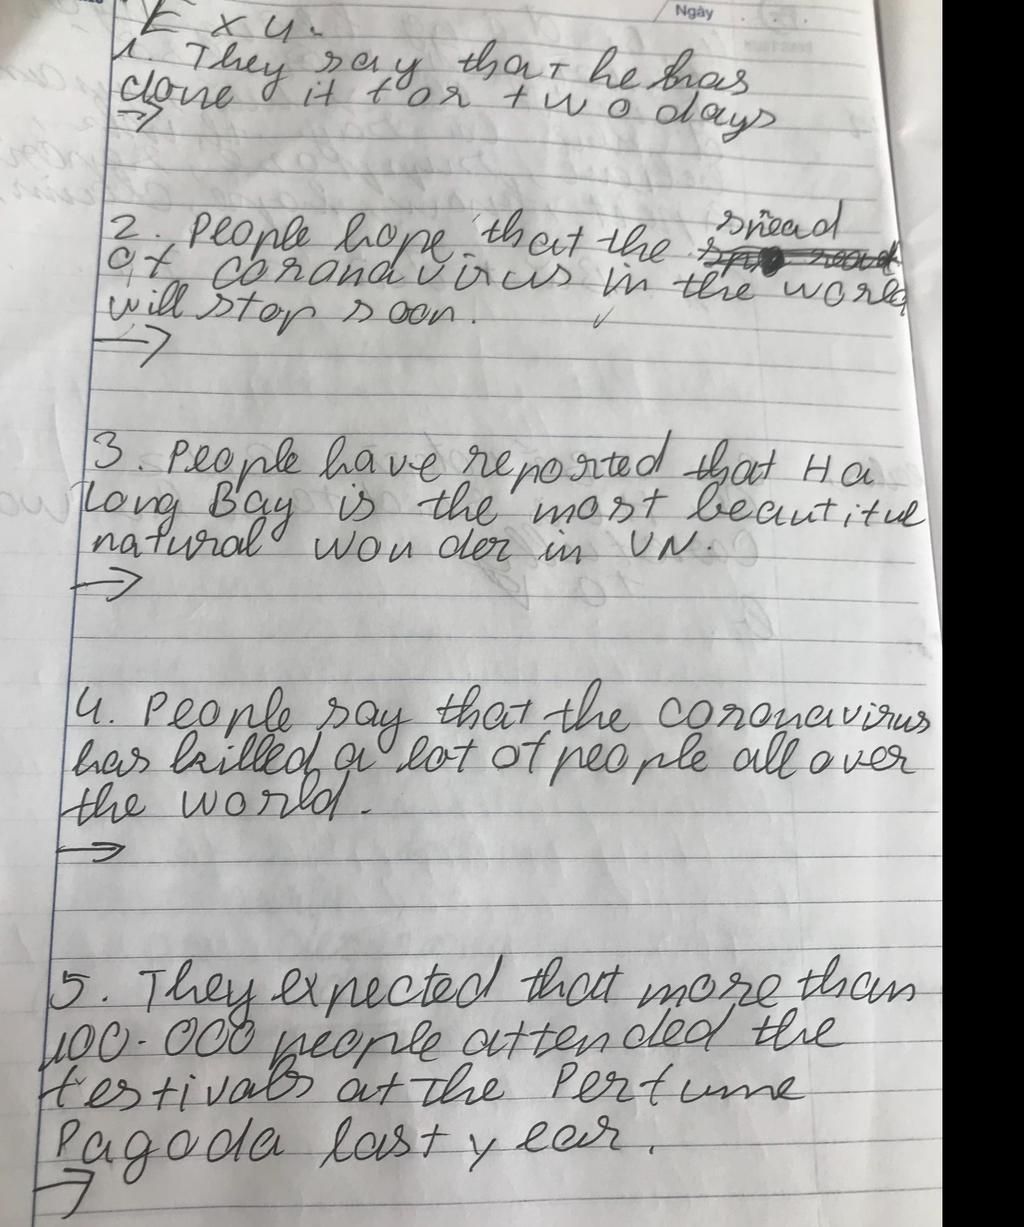 Ngày
Ex 4.
1. They say that he has
done it for two days
→
2. People hope that the spread
of coronavirus in the world
will stop soon.
→
3. People have reported that Ha
Long Bay is the most beautiful
natural wonder in VN.
→
4. People say that the coronavirus
has killed a lot of people all over
the world.
→
5. They expected that more than
100.000 people attended the
festivals at the Perfume
Pagoda last year.
→